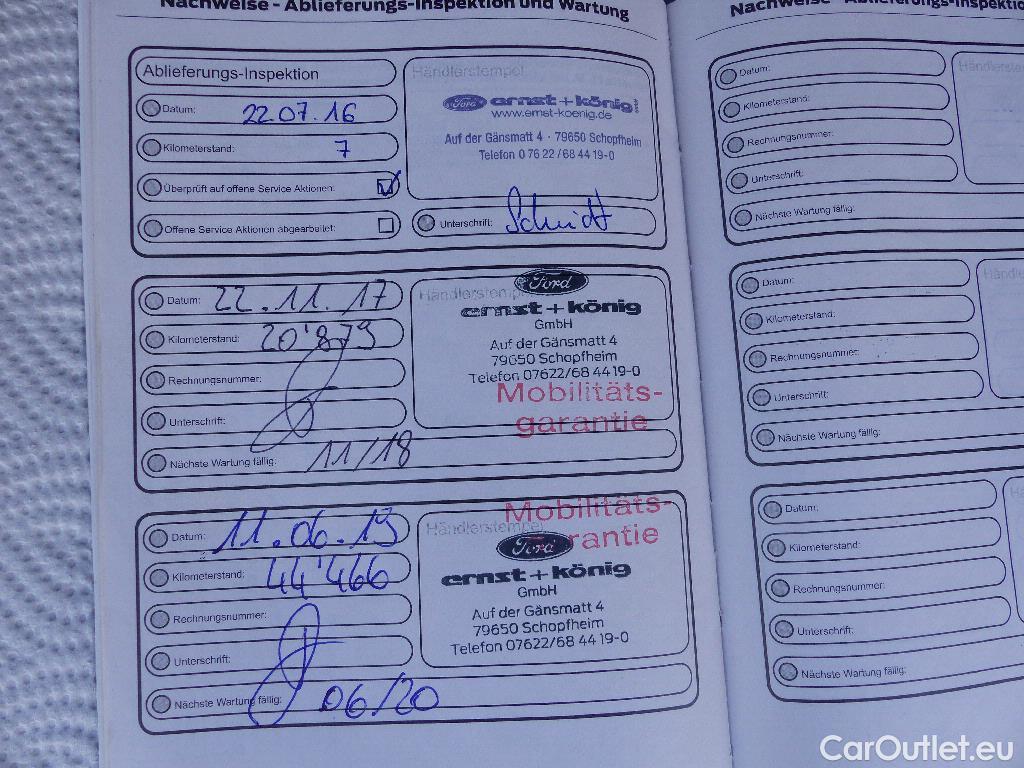 Nachweise - Ablieferungs-Inspektion und Wartung
Ablieferungs-Inspektion
Datum: 22.07.16
Kilometerstand: 7
Überprüft auf offene Service Aktionen:
Offene Service Aktionen abgearbeitet:
Händlerstempel
Ford ernst+könig
www.ernst-koenig.de
Auf der Gänsmatt 4 · 79650 Schopfheim
Telefon 0 76 22 / 68 44 19-0
Unterschrift: Schmidt
Datum: 22.11.17
Kilometerstand: 20'879
Rechnungsnummer:
Unterschrift:
Nächste Wartung fällig: 11/18
Händlerstempel
Ford
ernst+könig
GmbH
Auf der Gänsmatt 4
79650 Schopfheim
Telefon 07622/68 44 19-0
Mobilitäts-
garantie
Datum: 11.06.19
Kilometerstand: 44'466
Rechnungsnummer:
Unterschrift:
Nächste Wartung fällig: 06/20
Mobilitäts-
Händlerstempel
Ford rantie
ernst+könig
GmbH
Auf der Gänsmatt 4
79650 Schopfheim
Telefon 07622/68 44 19-0
Nachweise - Ablieferungs-Inspektio
Datum:
Kilometerstand:
Rechnungsnummer:
Unterschrift:
Nächste Wartung fällig:
Händlers
Datum:
Kilometerstand:
Rechnungsnummer:
Unterschrift:
Nächste Wartung fällig:
Händl
Datum:
Kilometerstand:
Rechnungsnummer:
Unterschrift:
Nächste Wartung fällig:
CarOutlet.eu